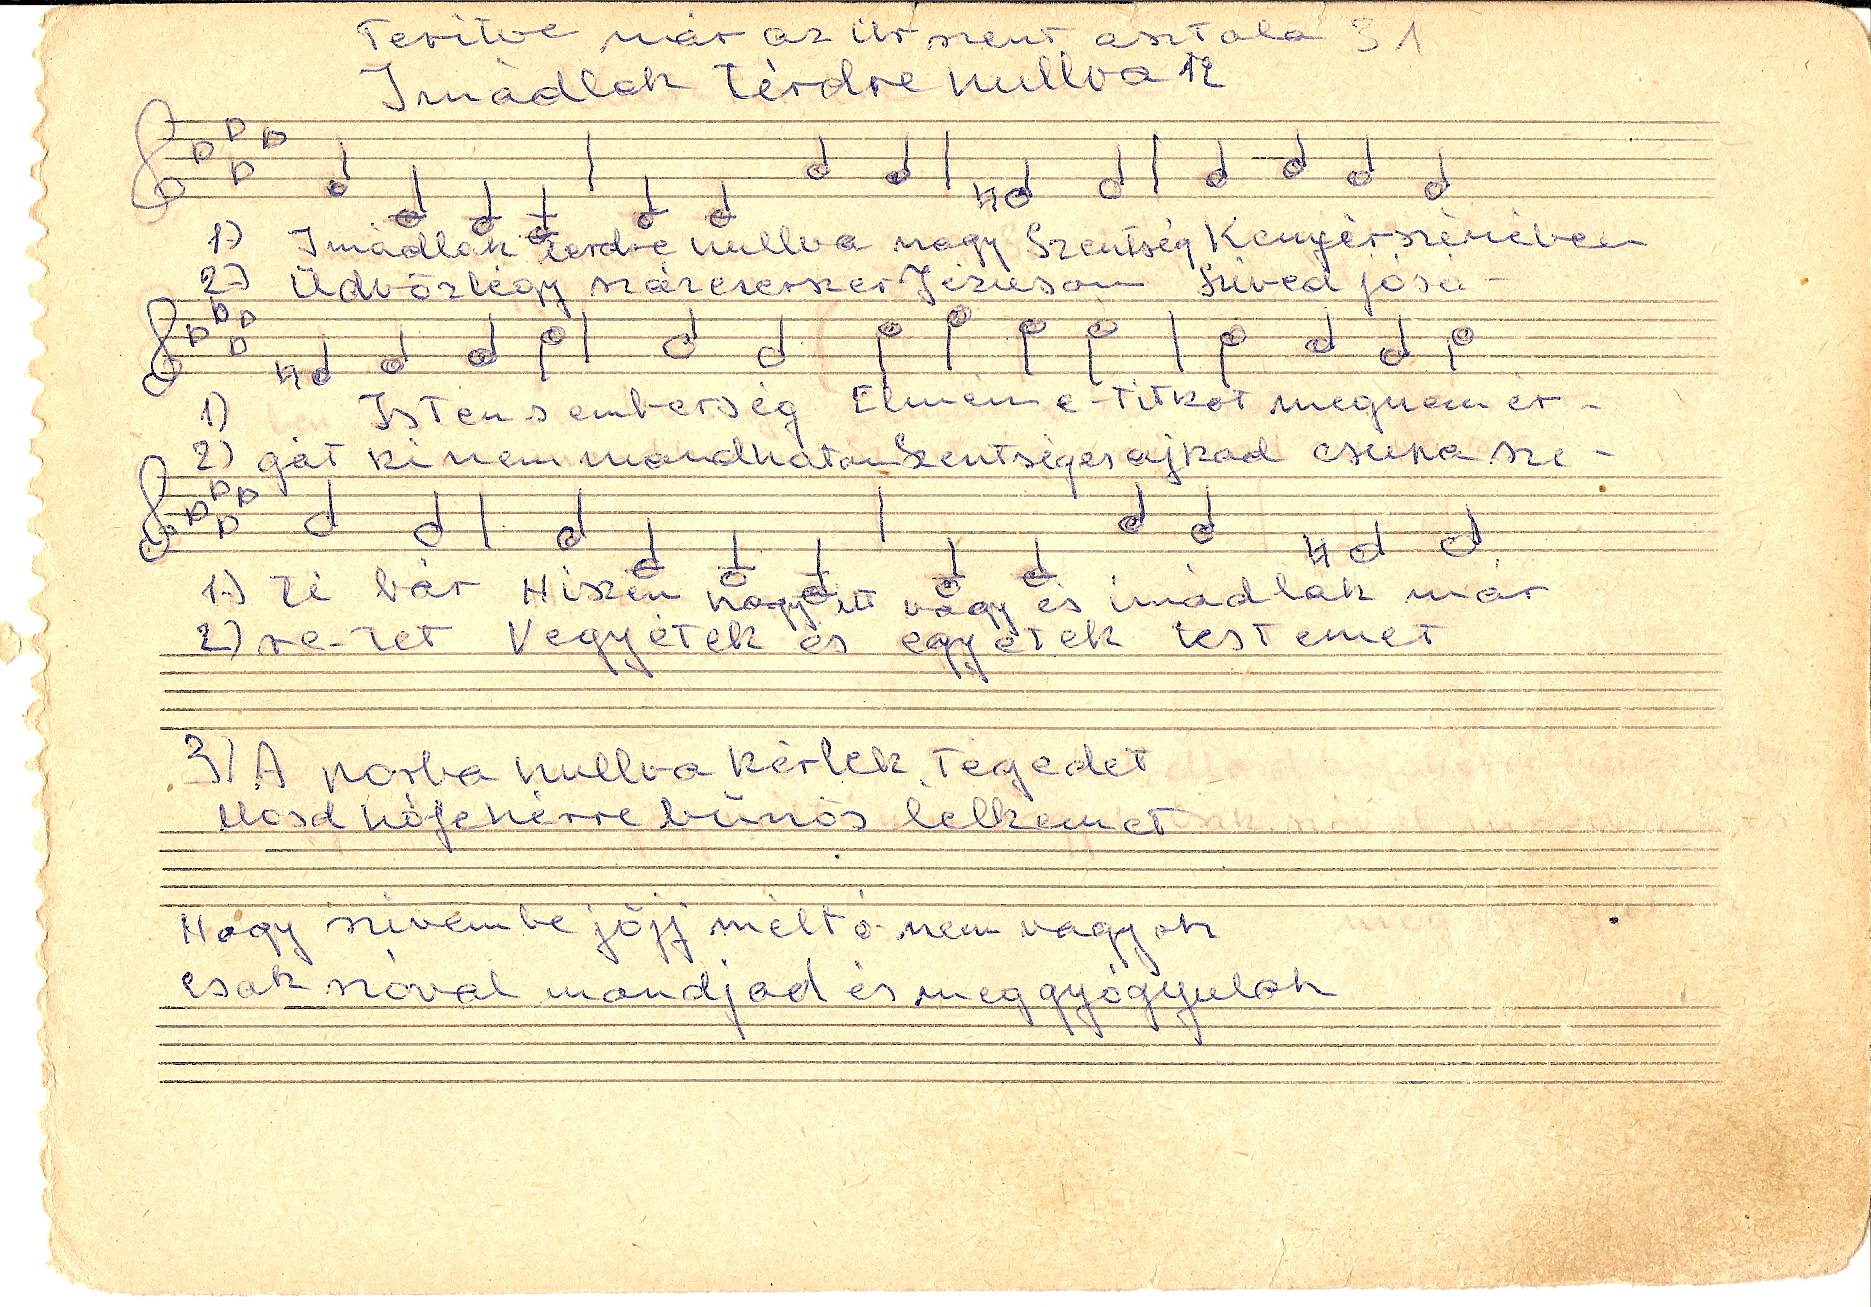 Terítve már az Úr szent asztala 31
Imádlak térdre hullva 12
1) Imádlak térdre hullva nagy Szentség Kenyérszínében
2) Üdvözlégy százezerszer Jézusom Szived jósá-
1) Istens emberség Elmém e titkot meg nem ér-
2) gát ki nem mondhatom Szentséges ajkad csupa sze-
1) ti bár Hiszem hogy itt vagy és imádlak már
2) re-tet Vegyétek és egyétek testemet
3) A porba hullva kérlek tégedet
Mosd hófehérre bűnös lelkemet
Hogy szívembe jőjj méltó nem vagyok
csak szóval mondjad és meggyógyulok